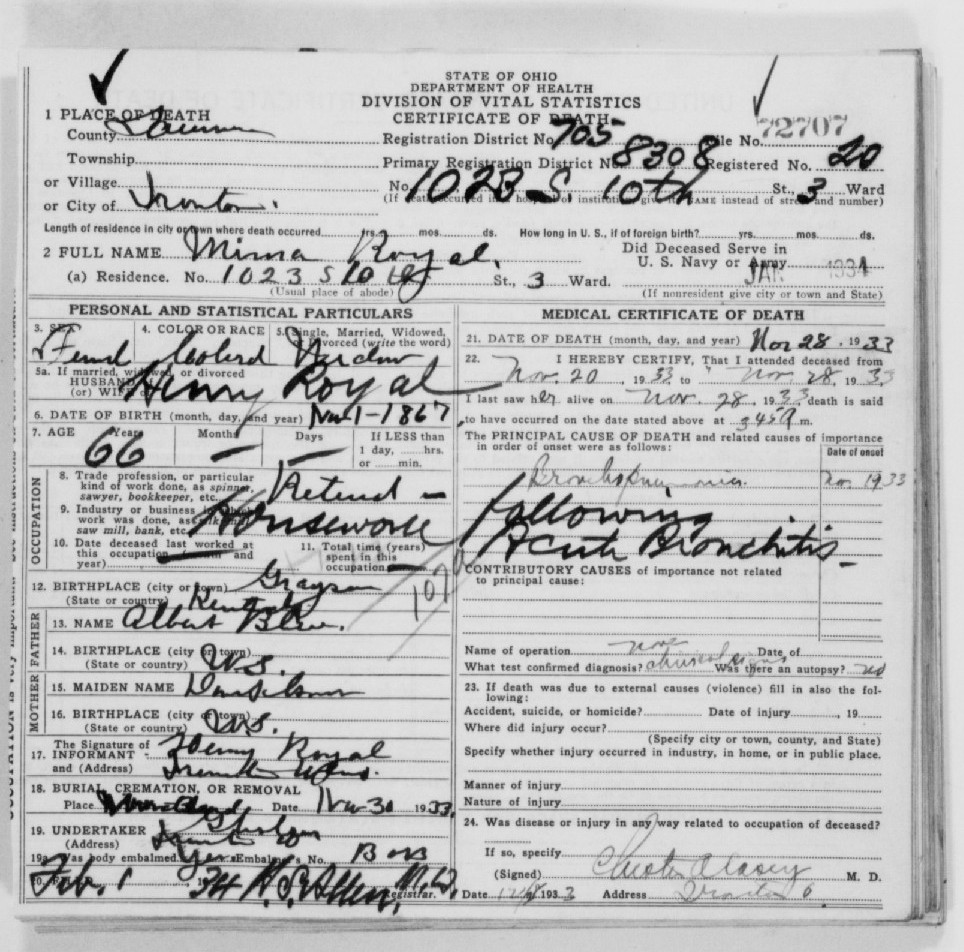 STATE OF OHIO
DEPARTMENT OF HEALTH
DIVISION OF VITAL STATISTICS
CERTIFICATE OF DEATH
1 PLACE OF DEATH
County
Township
or Village
or City of Ironton.
Registration District No. 705 File No. 72707
Primary Registration District No. 8308 Registered No. 20
No. 1023 S 10th St., 3 Ward
(If death occurred in a hospital or institution, give its NAME instead of street and number)
Length of residence in city or town where death occurred yrs. mos. ds. How long in U. S., if of foreign birth? yrs. mos. ds.
2 FULL NAME Minna Royal.
Did Deceased Serve in
U. S. Navy or Army
JAN 1934
(a) Residence. No. 1023 S 10th St., 3 Ward.
(Usual place of abode) (If nonresident give city or town and State)
PERSONAL AND STATISTICAL PARTICULARS
3. SEX 4. COLOR OR RACE 5. Single, Married, Widowed, or Divorced (write the word)
Feml Colord Widow
5a. If married, widowed, or divorced
HUSBAND
(or) WIFE Henry Royal
6. DATE OF BIRTH (month, day, and year) Nov-1-1867
7. AGE Years Months Days If LESS than
1 day, hrs.
or min.
66 — —
OCCUPATION
8. Trade profession, or particular
kind of work done, as spinner,
sawyer, bookkeeper, etc. Retired -
9. Industry or business in which
work was done, as silk mill,
saw mill, bank, etc. Housework
10. Date deceased last worked at
this occupation (month and
year)
11. Total time (years)
spent in this
occupation
107
12. BIRTHPLACE (city or town) Grayson
(State or country) Kentucky
FATHER
13. NAME Albert
14. BIRTHPLACE (city or town)
(State or country) U.S.
MOTHER
15. MAIDEN NAME
16. BIRTHPLACE (city or town)
(State or country) U.S.
17. The Signature of
INFORMANT Henry Royal
and (Address) Ironton
18. BURIAL, CREMATION, OR REMOVAL
Place Woodland Date Nov 30 1933.
19. UNDERTAKER
(Address) Ironton O
19a Was body embalmed Yes Embalmer's No.
20. FILED Feb. 1 1934 Registrar.
MEDICAL CERTIFICATE OF DEATH
21. DATE OF DEATH (month, day, and year) Nov 28, 1933
22. I HEREBY CERTIFY, That I attended deceased from
Nov. 20, 1933 to Nov. 28, 1933
I last saw her alive on Nov. 28, 1933 death is said
to have occurred on the date stated above at 345 m.
The PRINCIPAL CAUSE OF DEATH and related causes of importance
in order of onset were as follows:
Date of onset
Bronchopneumonia. Nov 1933
following
Acute Bronchitis
CONTRIBUTORY CAUSES of importance not related
to principal cause:
Name of operation none Date of
What test confirmed diagnosis? Was there an autopsy? no
23. If death was due to external causes (violence) fill in also the following:
Accident, suicide, or homicide? Date of injury , 19
Where did injury occur?
(Specify city or town, county, and State)
Specify whether injury occurred in industry, in home, or in public place.
Manner of injury
Nature of injury
24. Was disease or injury in any way related to occupation of deceased?
If so, specify
(Signed) M. D.
Date 1933 Address Ironton O